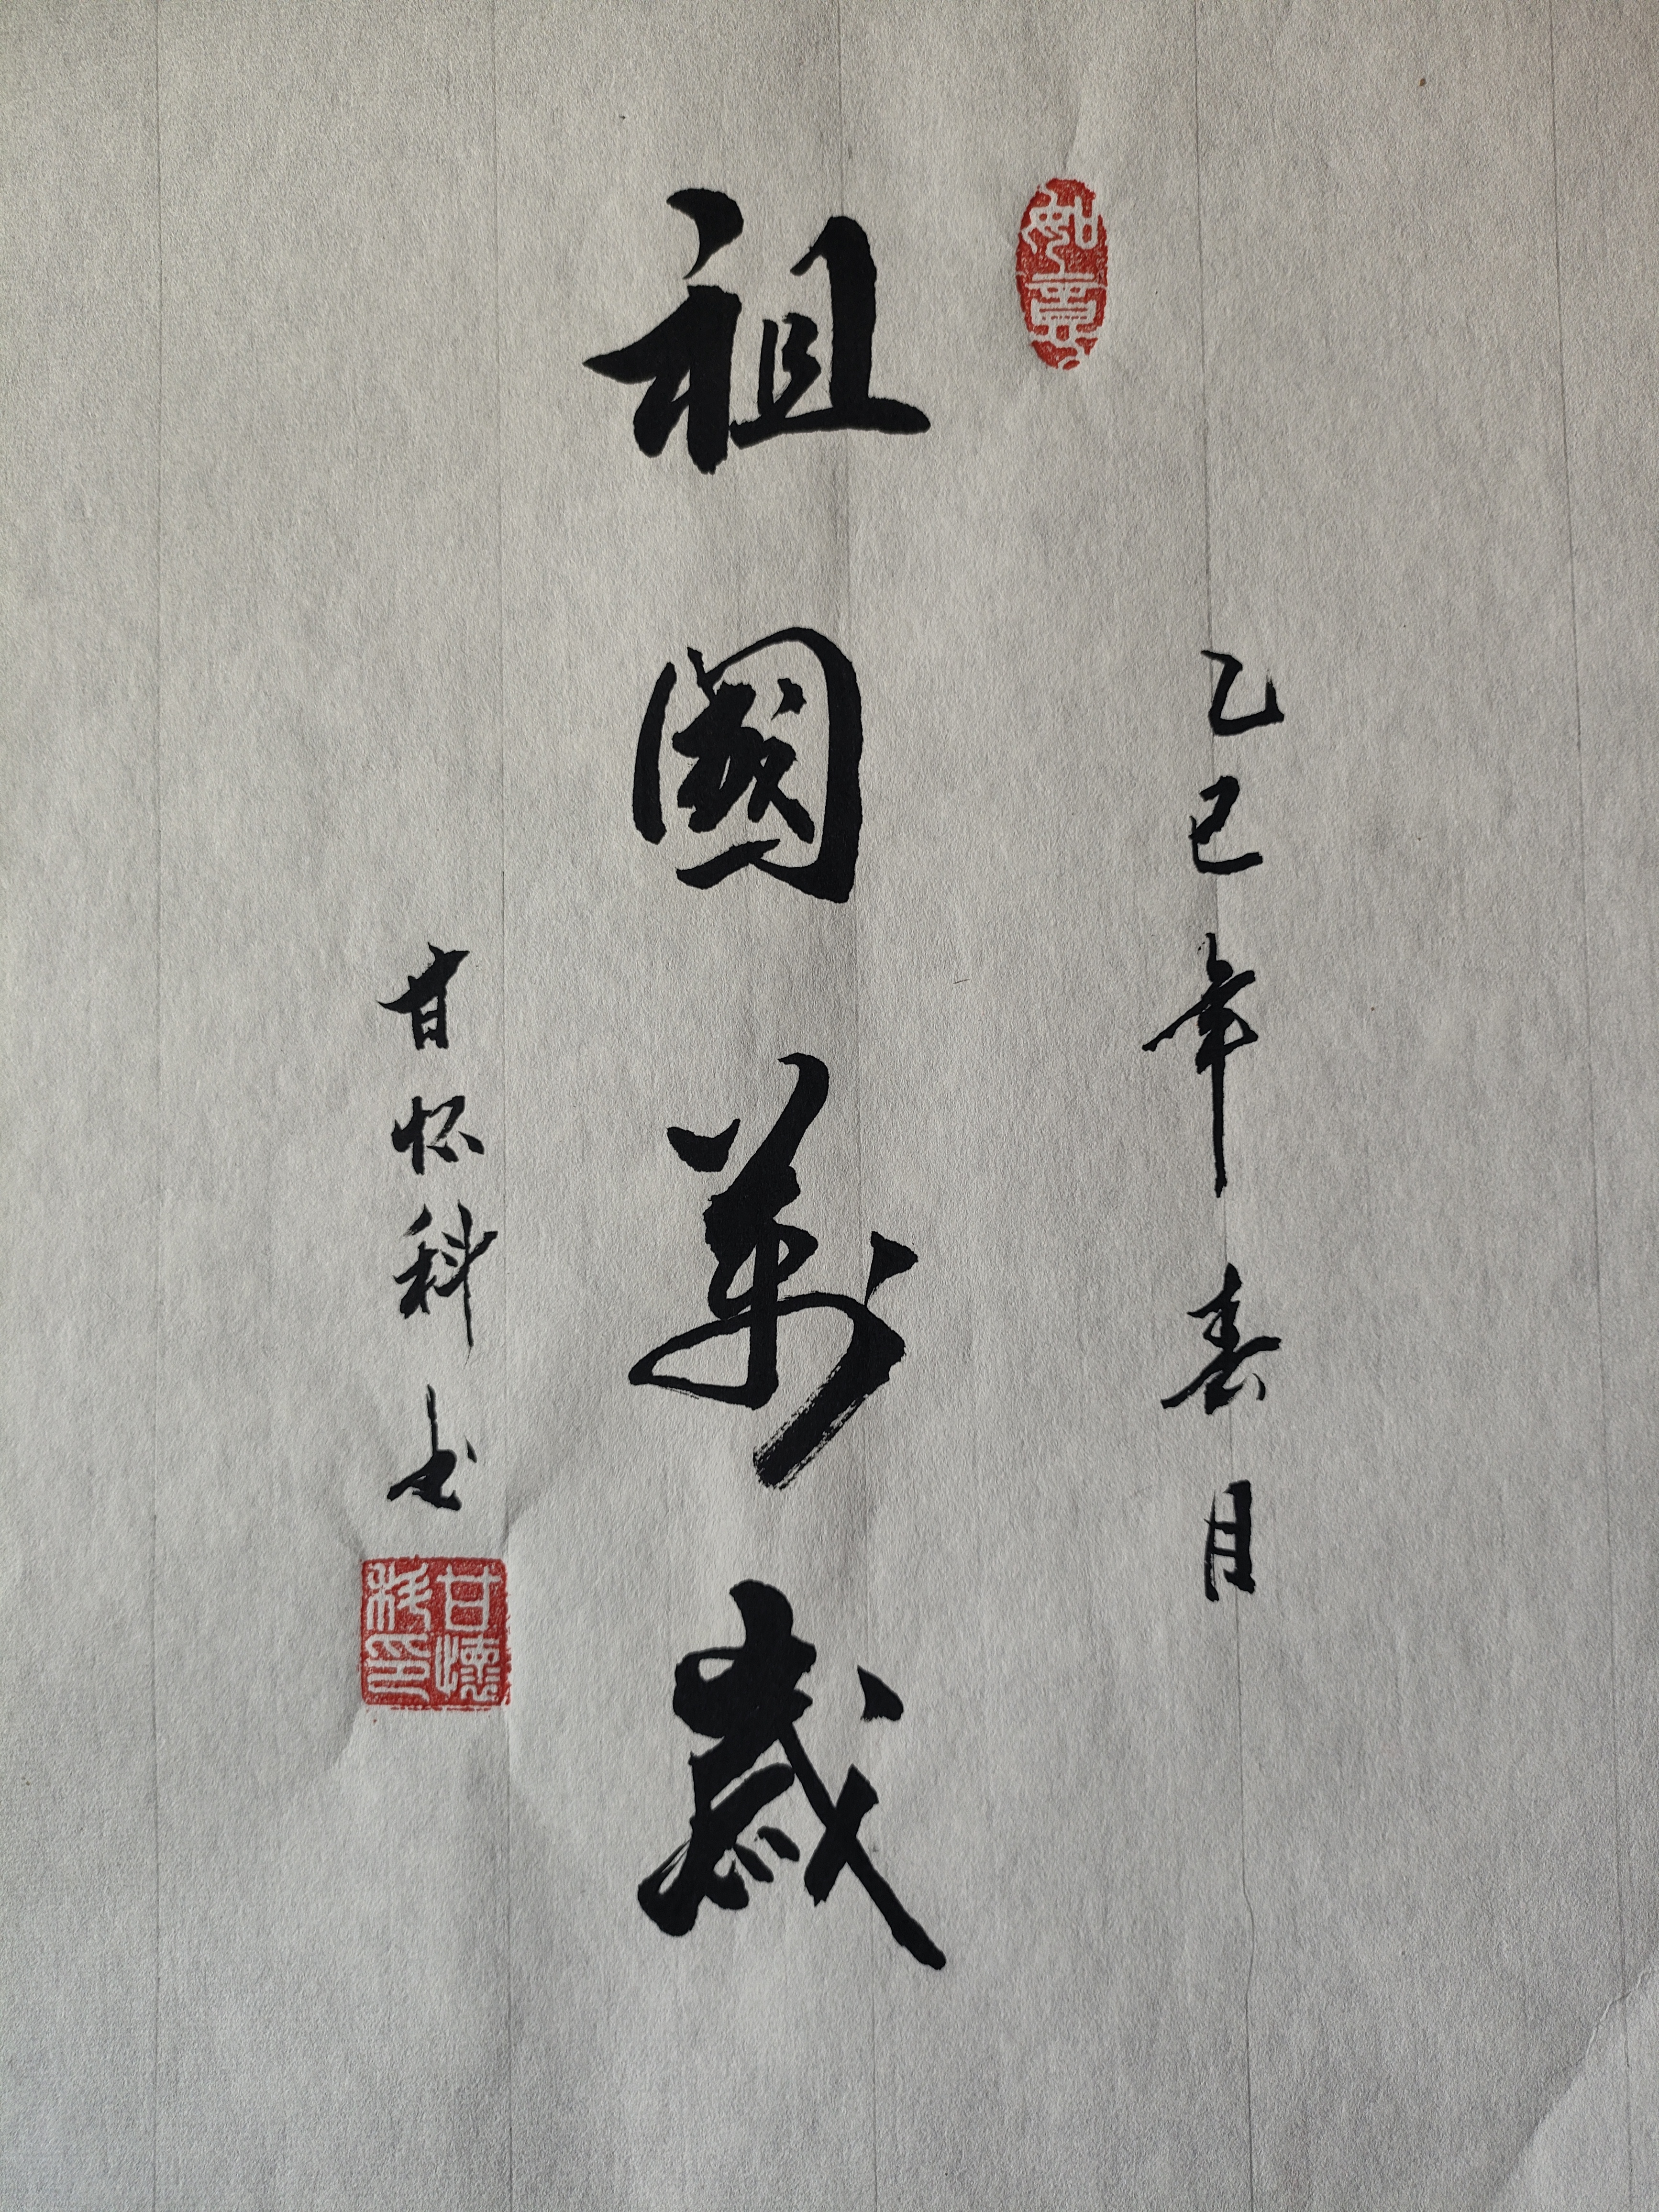 乙巳年春月
如意
祖國萬歲
甘怀科书
甘懷科印